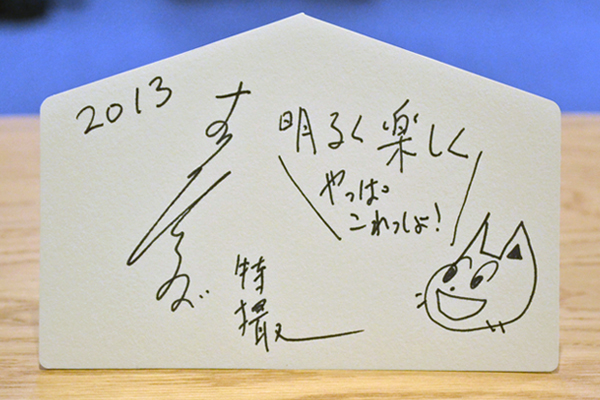 2013
明るく楽しく
やっぱ
これっしょ!
特撮